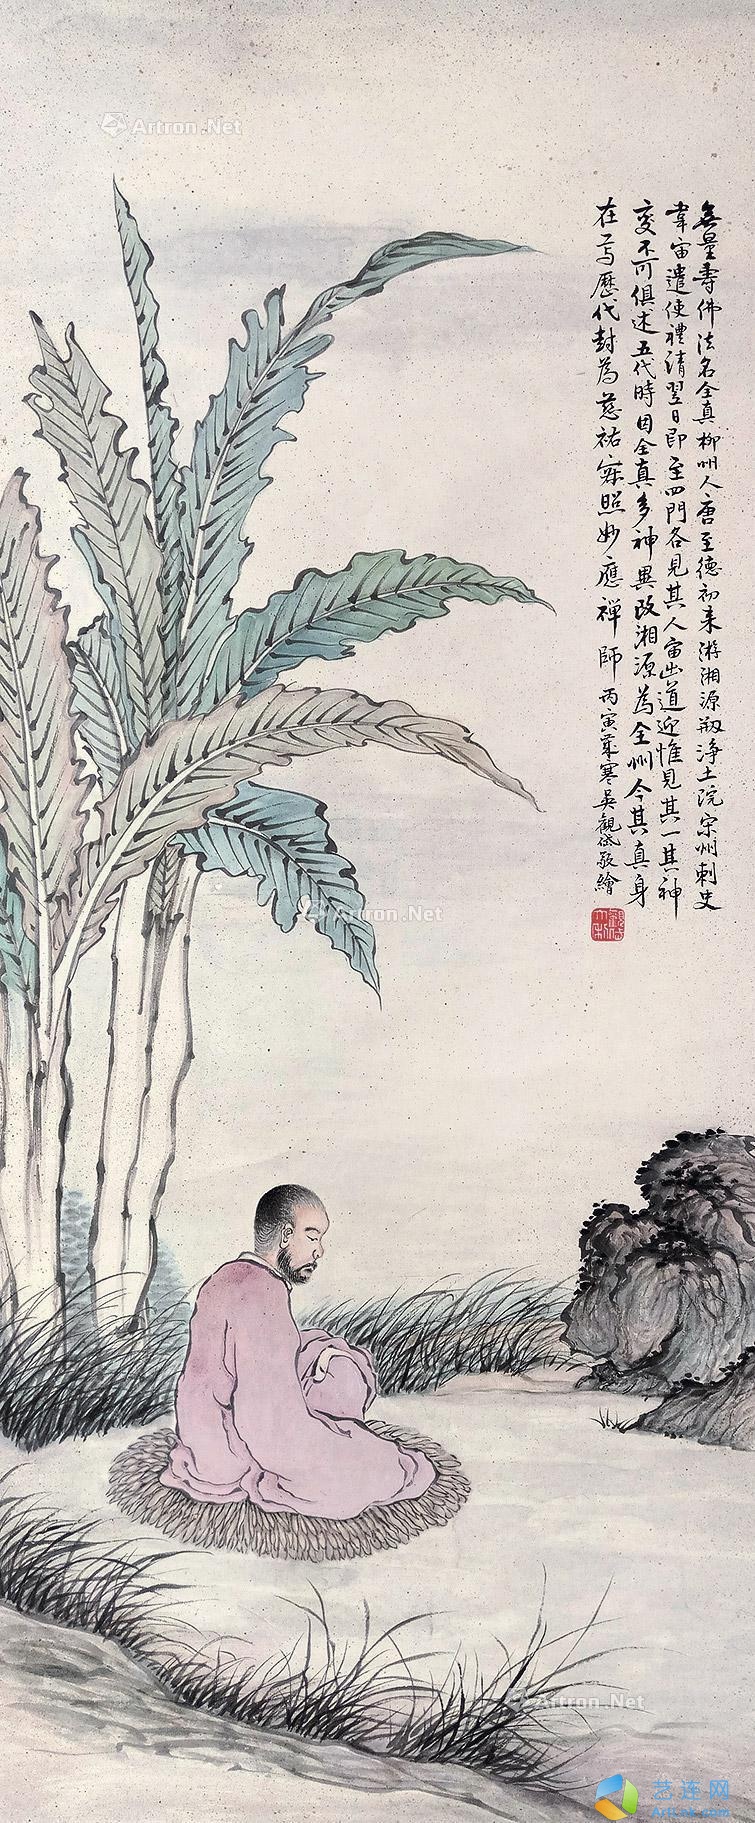 無量壽佛法名全真柳州人唐至德初來游湘源剏淨土院宗州刺史
韋宙遣使禮請翌日即至四門各見其人宙出道迎惟見其一其神
變不可俱述五代時因全真多神異改湘源為全州今其真身
在焉歷代封為慈祐寂照妙應禪師 丙寅寒吳觀岱敬繪
觀岱
Artron.Net
Artron.Net
Artron.Net
艺连网
ArtLnk.com